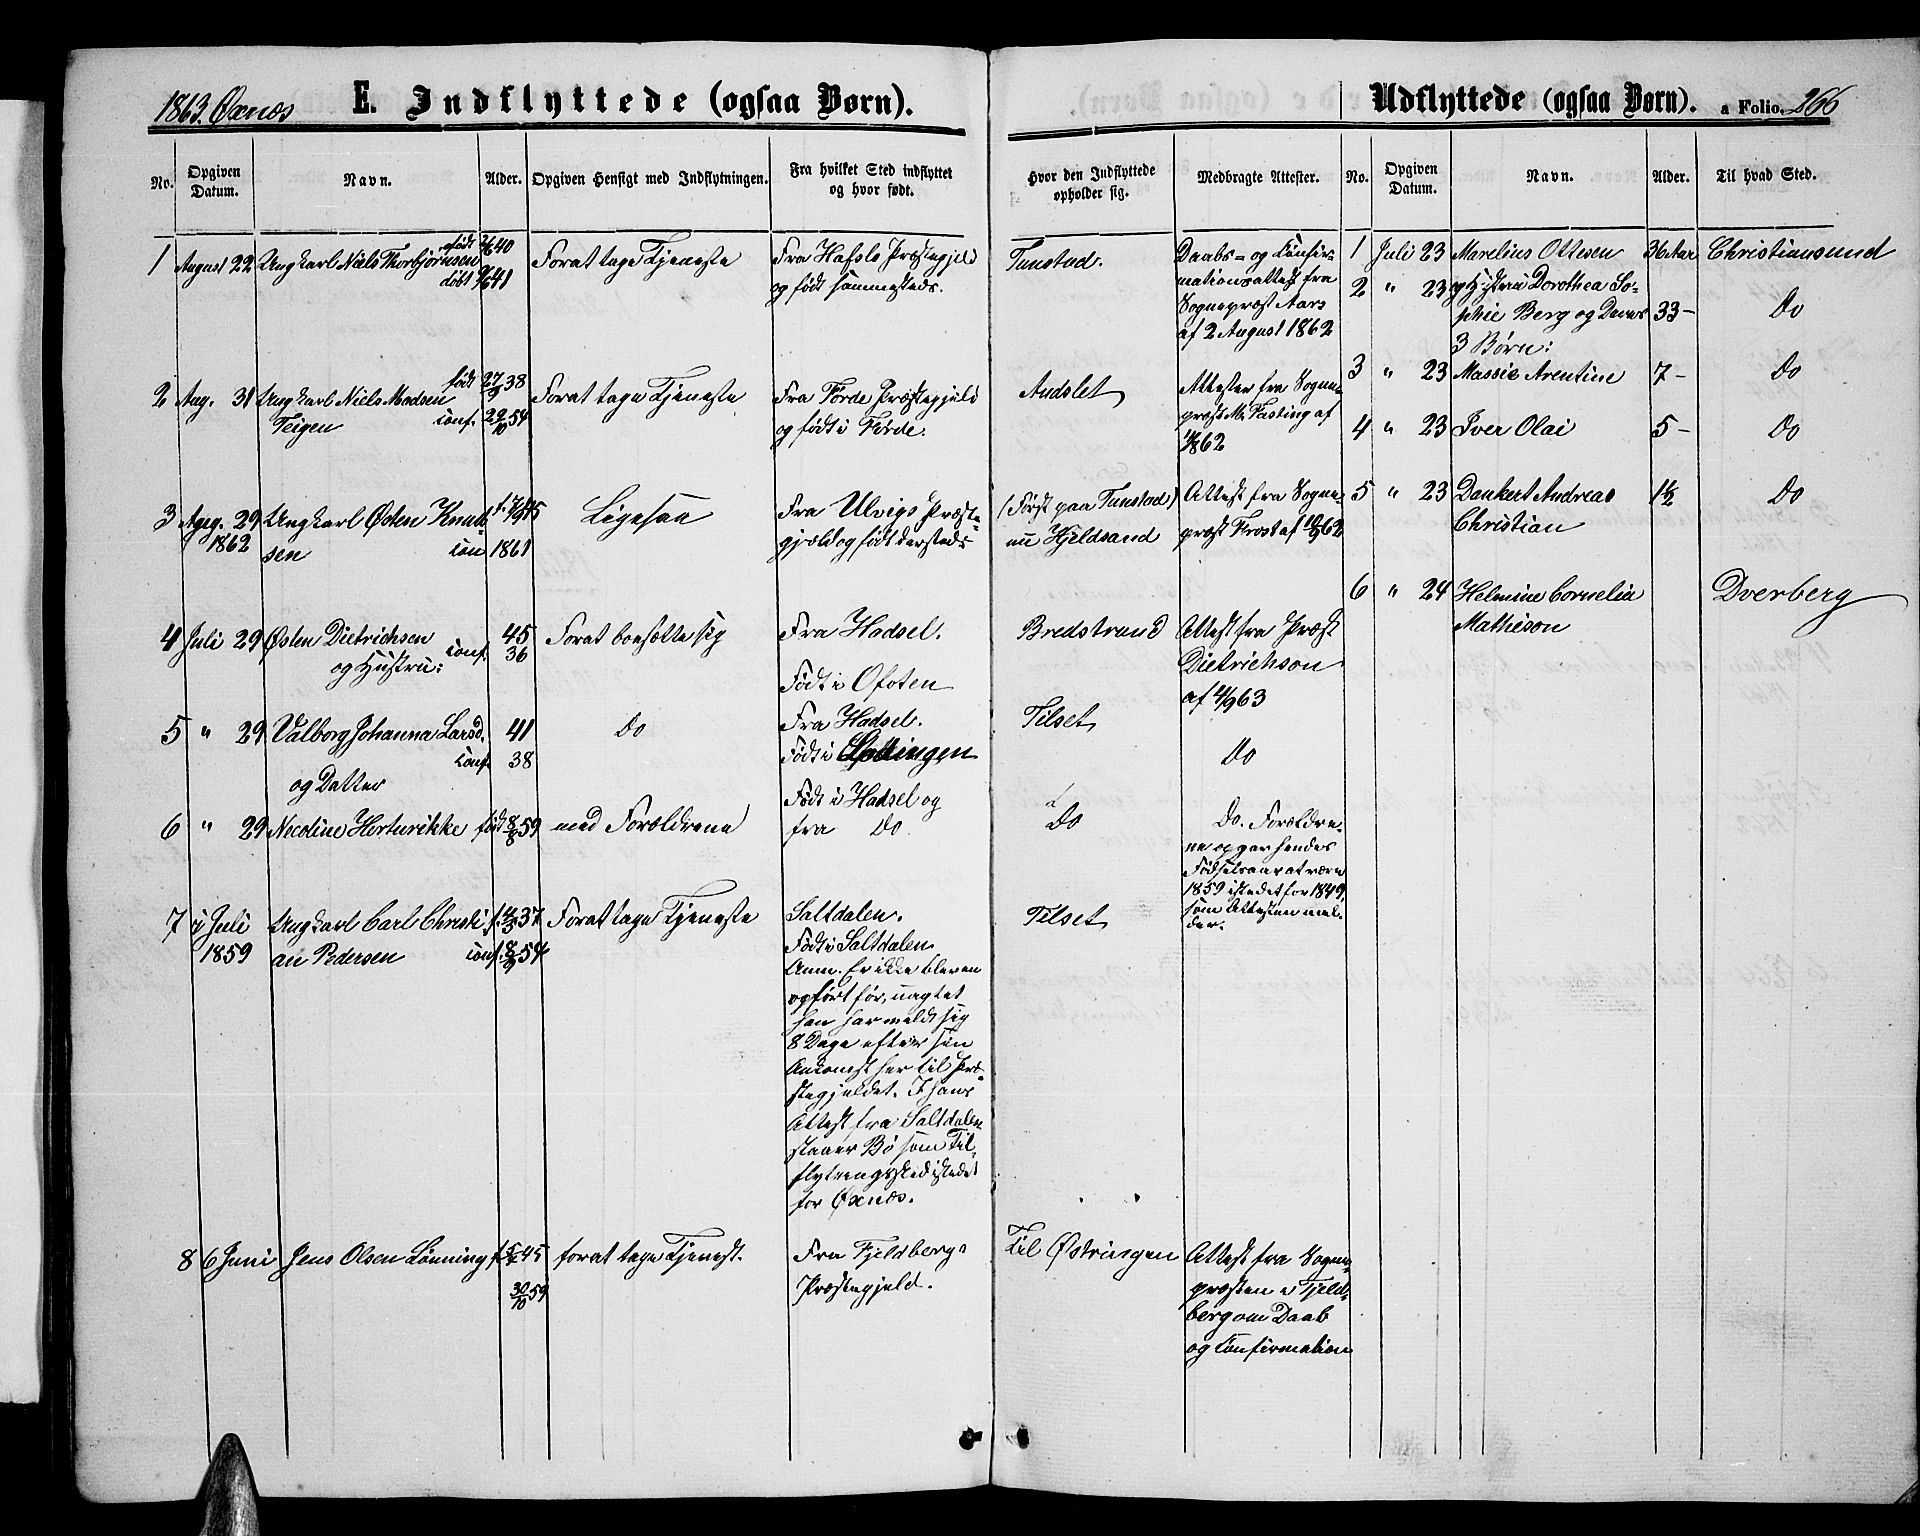 1863. Øxnæs
E. Indflyttede (ogsaa Børn).
No.
Opgiven Datum.
Navn.
Alder.
Opgiven Hensigt med Indflytningen.
Fra hvilket Sted indflyttet
og hvor født.
Hvor den Indflyttede
opholder sig.
Medbragte Attester.
1 August 22 Ungkarl Niels Thorbjørnsen født 40
døbt 41
Forat tage Tjeneste
Fra Hafslo Præstegjeld
og født sammesteds.
Tunstad.
Daabs- og Confir-
mationsattest fra
Sognepræst Aars
af 2 August 1862
2 Aug. 31 Ungkarl Niels Madsen født 27/9 38
Teigen conf. 22/10 54
Forat tage Tjeneste
Fra Førde Præstegjeld
og født i Førde.
Andslet
Attester fra Sogne-
præst M. Fasting af
62
3 Aug. 29 Ungkarl Østen Knud-
1862 sen con 1861
Ligesaa
Fra Ulvigs Præste-
gjæld og født dersteds
(Først paa Tunstad)
nu Kjeldsand
Attest fra Sogne-
præst Frost af 62
4 Juli 29 Østen Dietrichsen 45
og Hustru: conf. 36
Forat bosætte sig
Fra Hadsel.
Født i Ofoten
Bredstrand
Attest fra Præst
Dietrichson
af 4/9 63
5 " 29 Valborg Johanna Larsd. 41
conf. 38
og Datter
Do
Fra Hadsel.
Født i
Tilset
Do
6 " 29 Nicoline Hertwikke født 8/8 59
med Forældrene
Født i Hadsel og
fra Do.
Do
Do. Forældre-
ne opgav hendes
Fødselsaar at være
1859 istedet for 1849,
som Attesten mel-
der.
7 i Juli Ungkarl Carl Christi- f. 37
1859 an Pedersen conf. 8/9 54
Forat tage Tjeneste
Saltdalen.
Født i Saltdalen.
Anm. Er ikke bleven
opført før, uagtet
han har meldt sig
8 Dage efter sin
Ankomst her til Præ-
stegjeldet. I hans
Attest fra Saltdalen
staaer Bø som Til-
flytningssted istedet
for Øxnæs.
Tilset
8 6 Juni Jens Olsen Lønning f. 45
30/10 59
forat tage Tjenest.
Fra Fjeldbergs
Præstegjeld.
Til Østringen
Attest fra Sogne-
præsten i Fjeld-
berg om Daab
og Confirmation
Udflyttede (ogsaa Børn). a Folio. 266
No.
Opgiven
Datum.
Navn.
Alder.
Til hvad Sted.
1 Juli 23 Marelius Ottesen 36 Aar Christiansund
2 " 23 og Hustru Dorothea So-
phie Berg og Deres 33 - Do
3 Børn:
3 " 23 Massie Arentine 7 - Do
4 " 23 Iver Olai 5 - Do
5 " 23 Dankert Andreas 1½ Do
Christian
6 " 24 Helmine Cornelia Dverberg
Mathieson